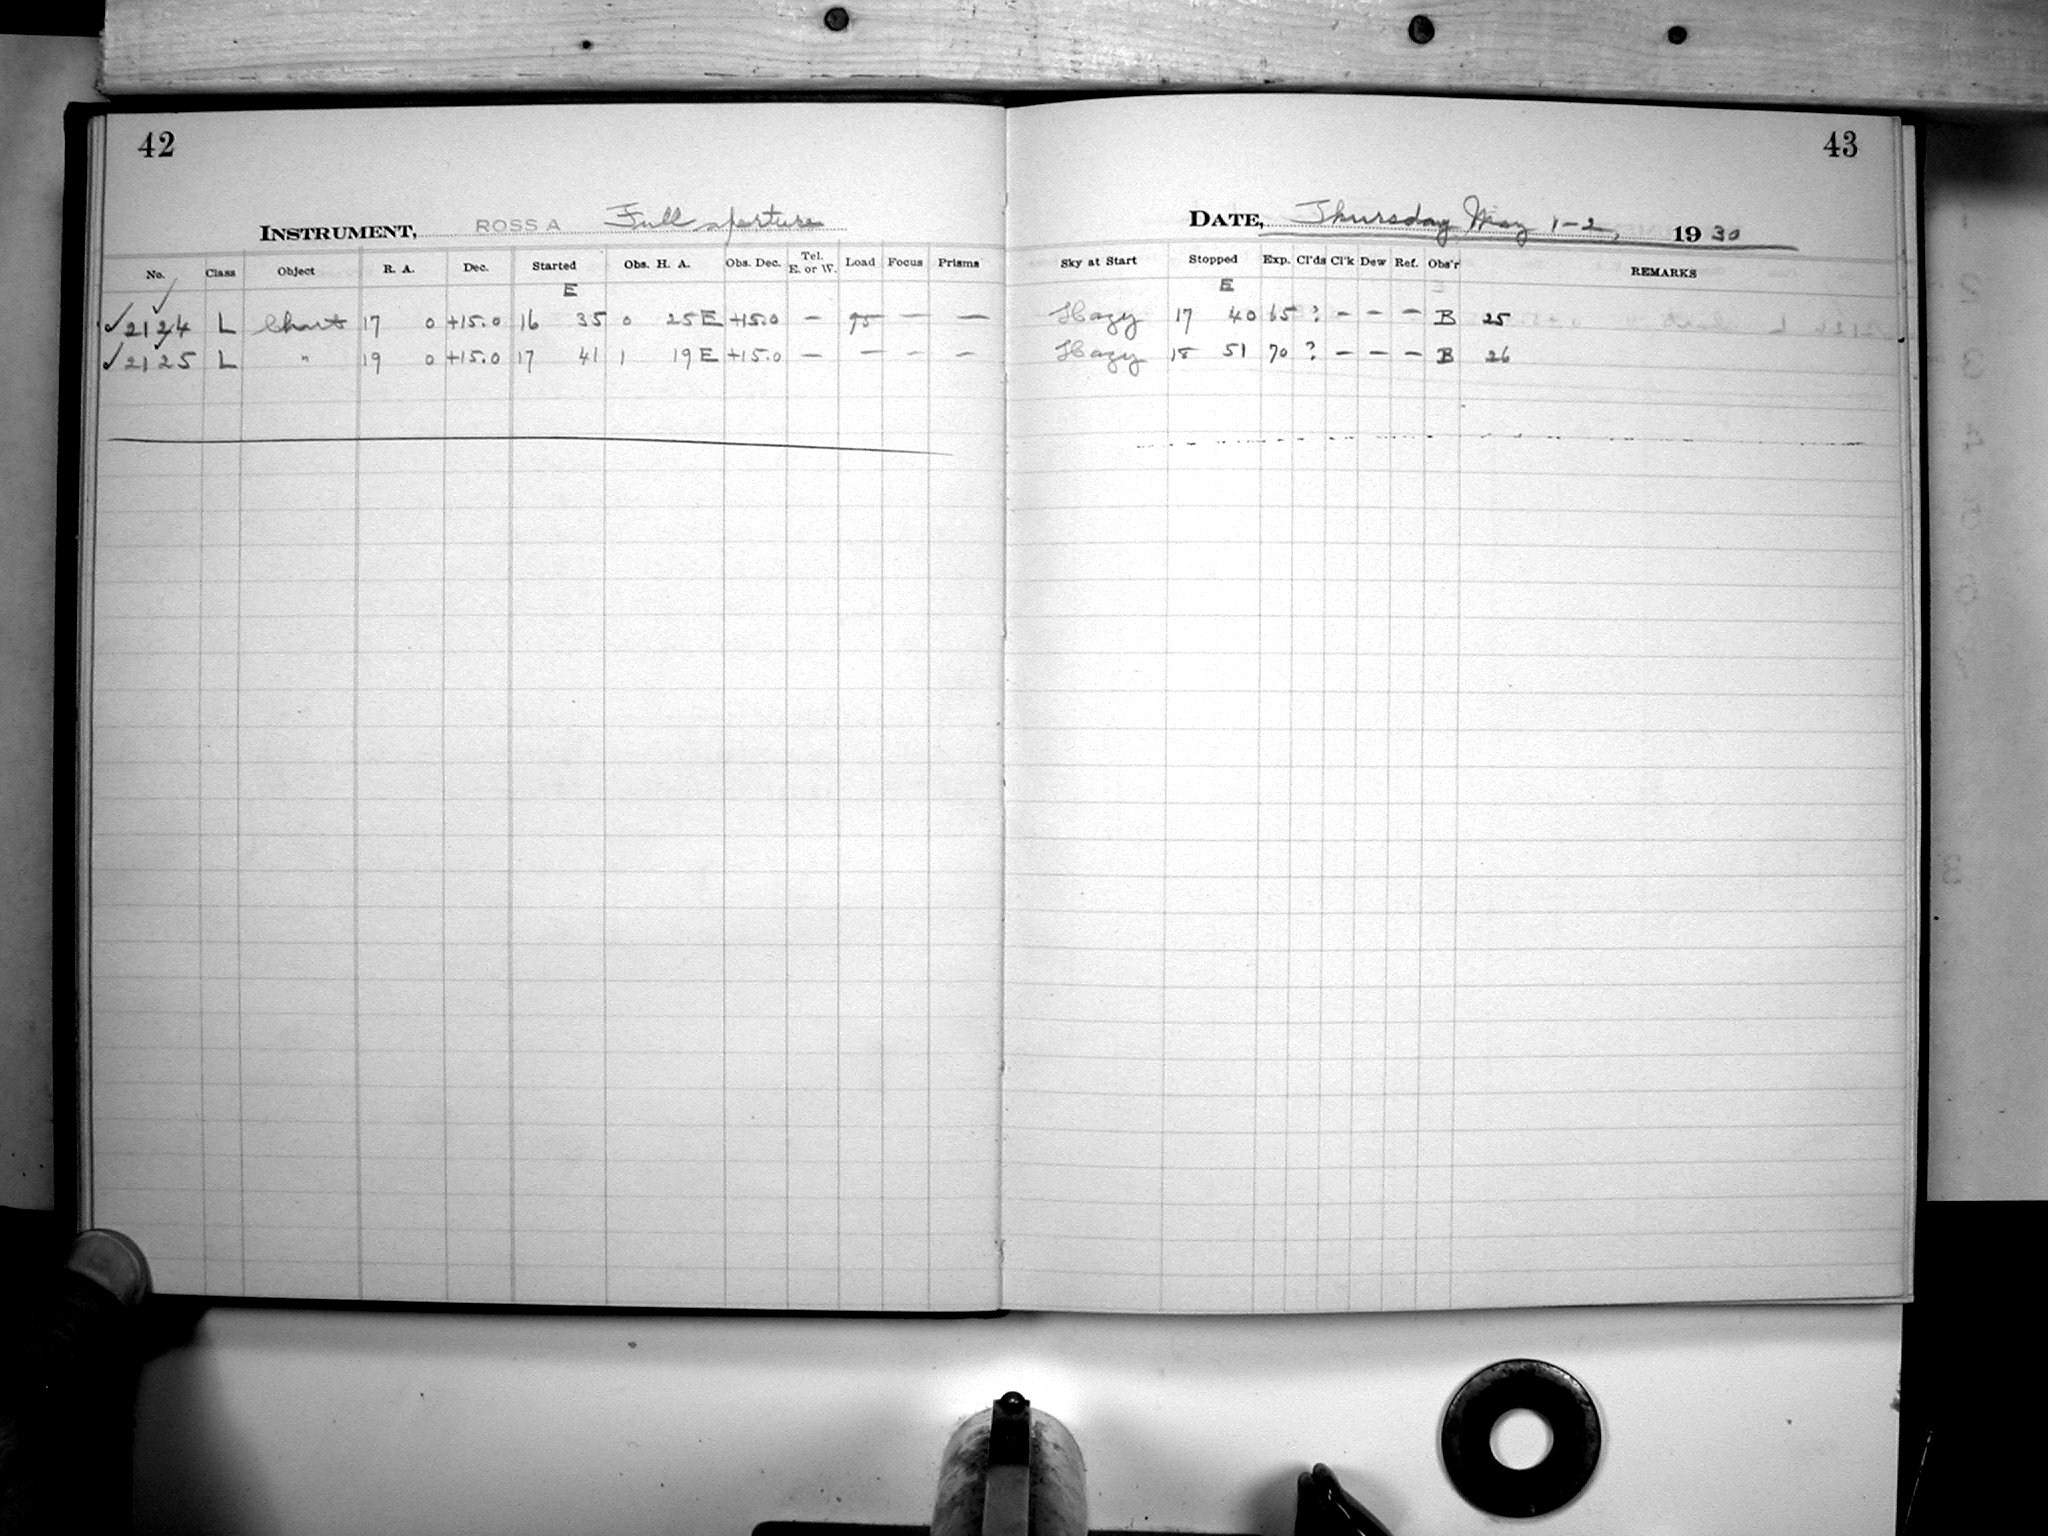 42
INSTRUMENT, ROSS A Full aperture
No. Class Object R. A. Dec. Started Obs. H. A. Obs. Dec. Tel. E. or W. Load Focus Prisms
E
✓ 2124 L Chart 17 0 +15.0 16 35 0 25 E +15.0 — 95 — —
✓ 2125 L " 19 0 +15.0 17 41 1 19 E +15.0 — — — —
43
DATE, Thursday May 1-2, 1930
Sky at Start Stopped Exp. Cl'ds Cl'k Dew Ref. Obs'r REMARKS
E
Hazy 17 40 65 ? — — — B 25
Hazy 18 51 70 ? — — — B 26